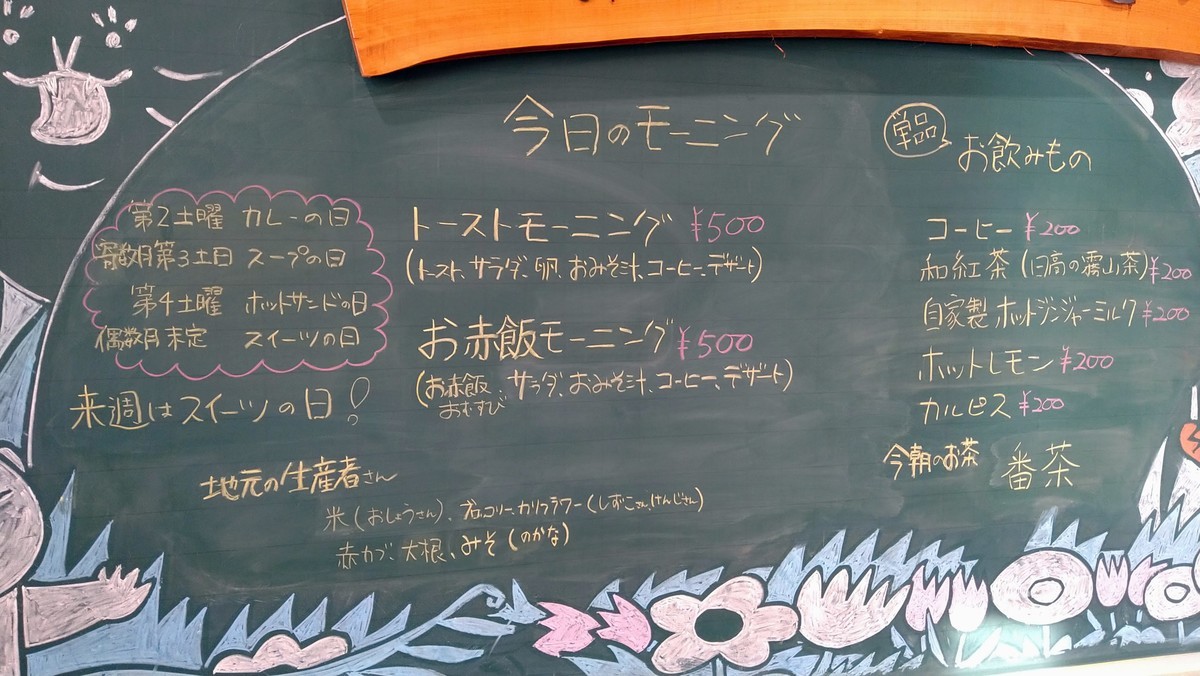 今日のモーニング
第2土曜 カレーの日
奇数月第3土日 スープの日
第4土曜 ホットサンドの日
偶数月未定 スイーツの日
来週はスイーツの日!
トーストモーニング ¥500
(トースト、サラダ、卵、おみそ汁、コーヒー、デザート)
お赤飯モーニング ¥500
(お赤飯おむすび、サラダ、おみそ汁、コーヒー、デザート)
単品 お飲みもの
コーヒー ¥200
和紅茶 (日高の霧山茶) ¥200
自家製ホットジンジャーミルク ¥200
ホットレモン ¥200
カルピス ¥200
今朝のお茶 番茶
地元の生産者さん
米(おしょうさん)、ブロッコリー、カリフラワー(しずこさん、けんじさん)
赤カブ、大根、みそ(のかな)